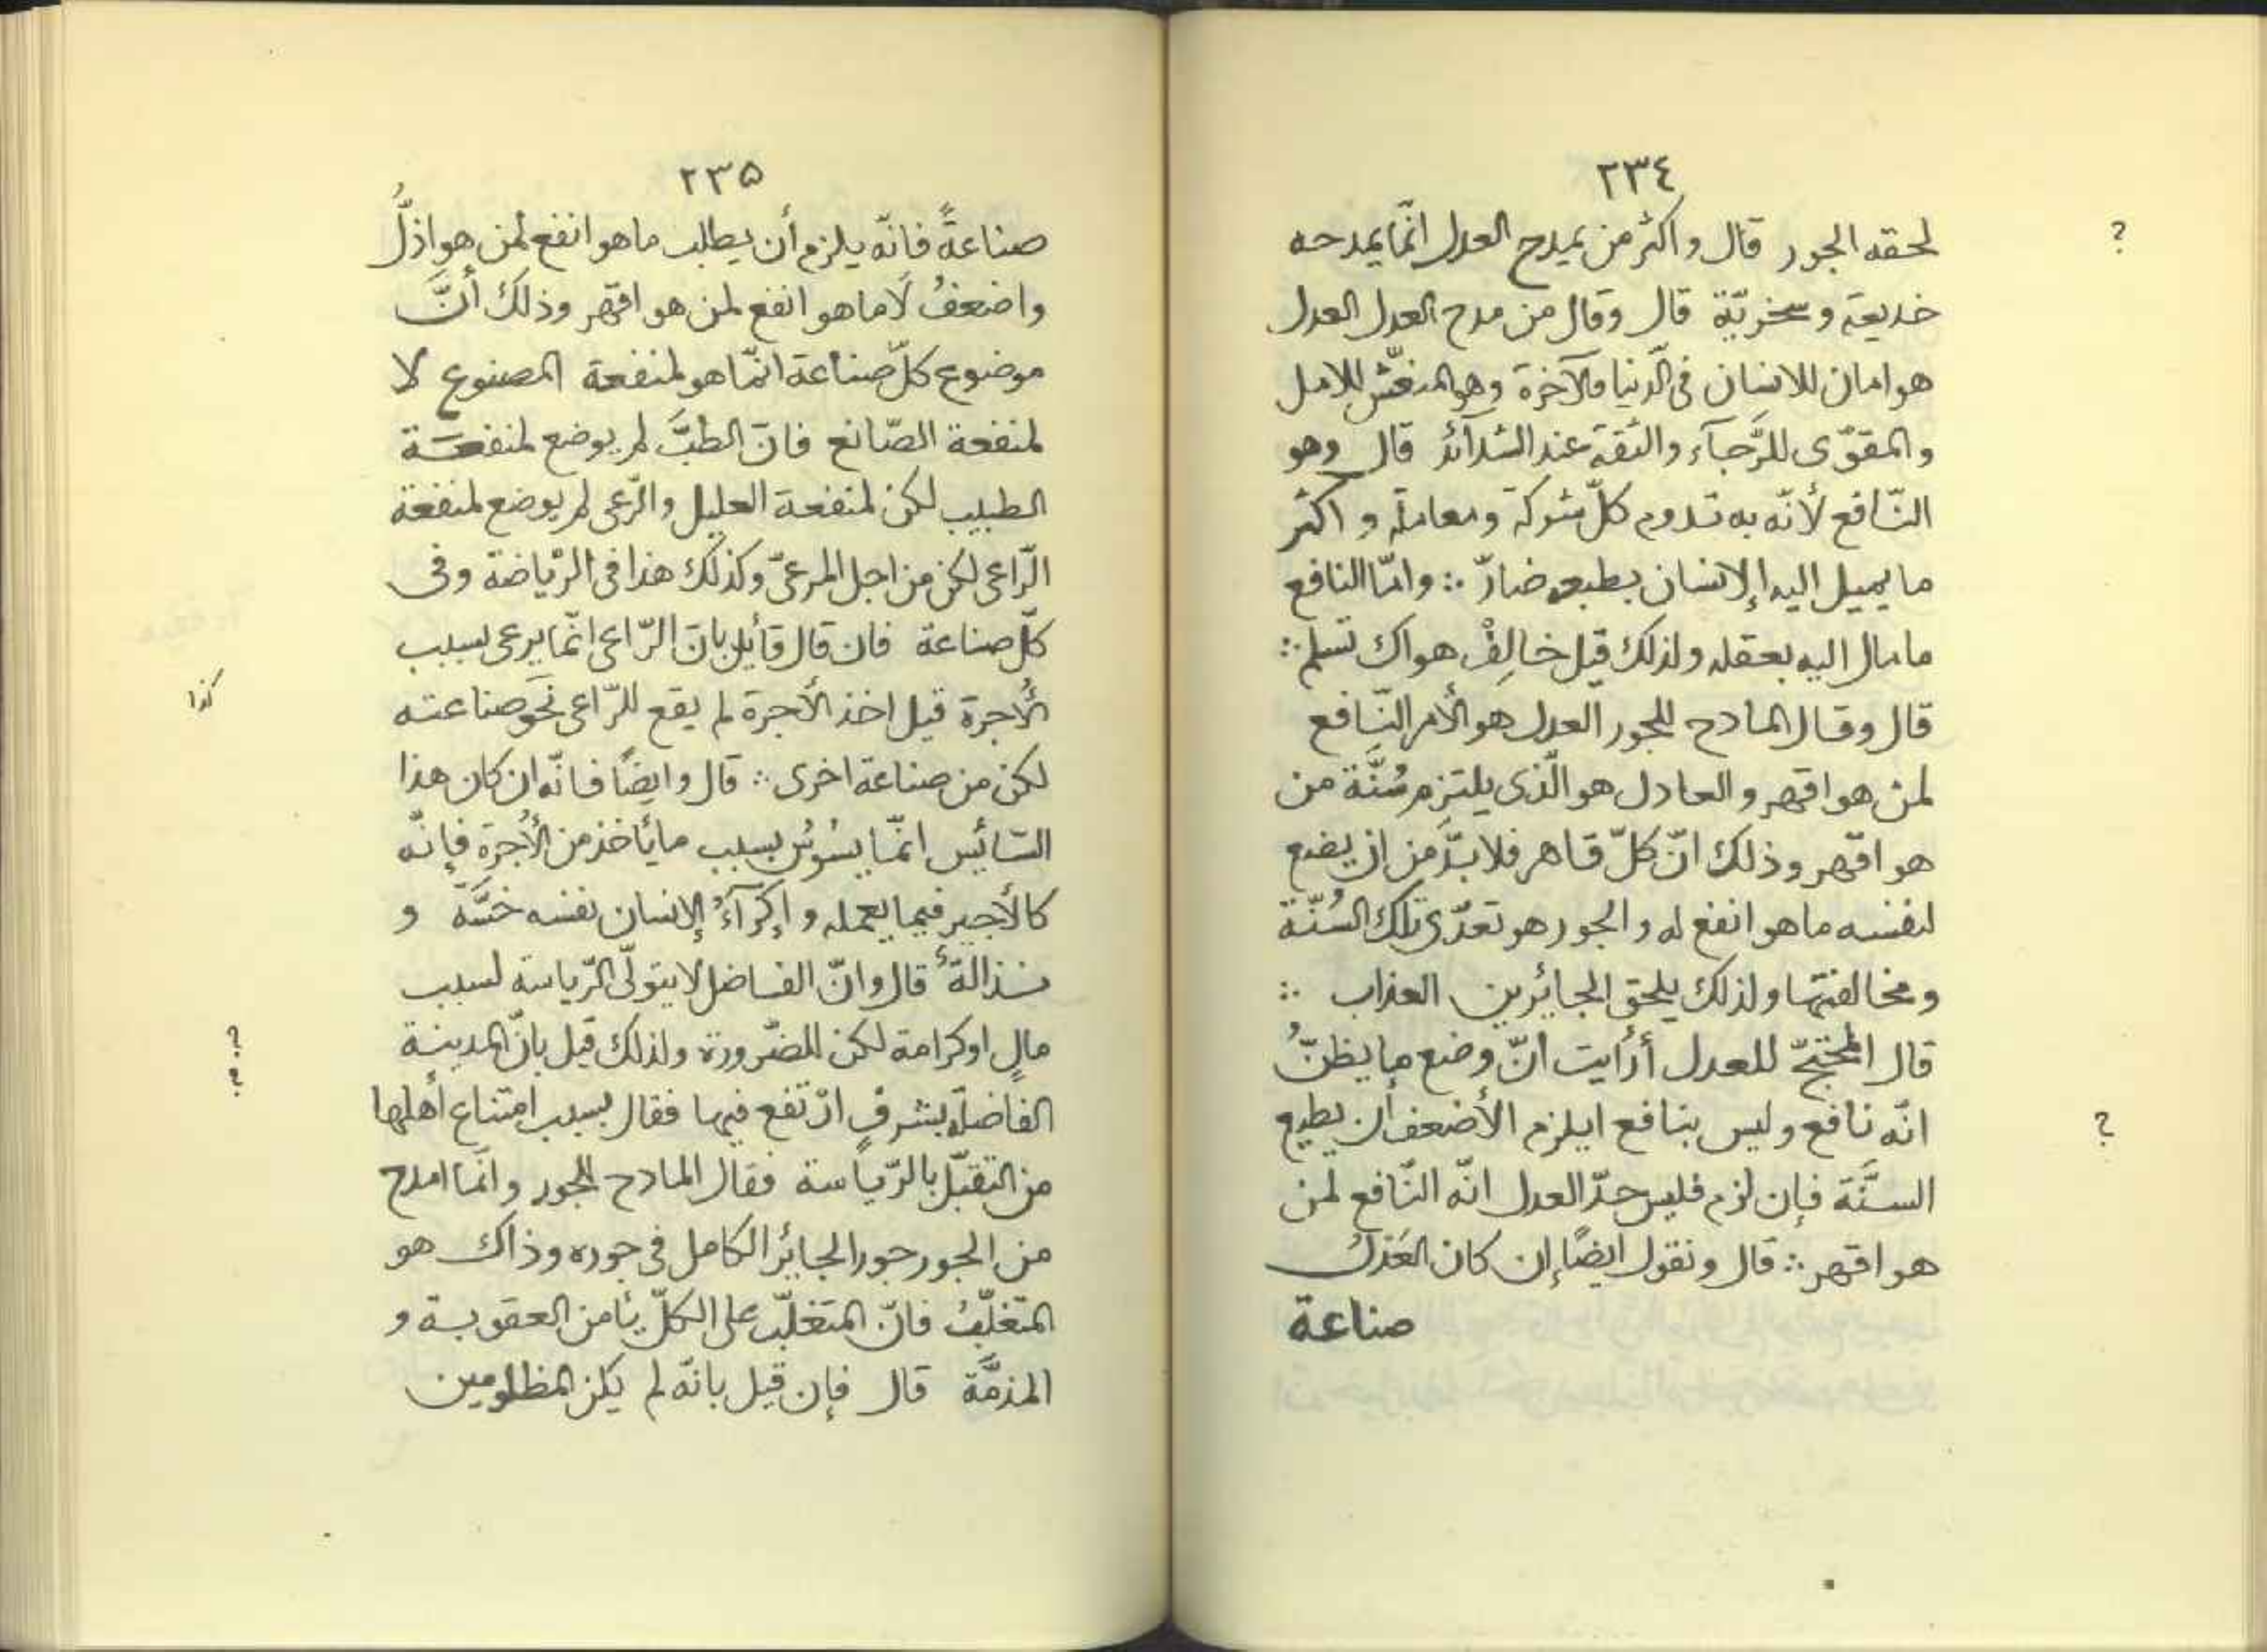 ٢٣٤
لحقه الجور قال واكثر من يمدح العدل انّما يمدحه
خديعة وسخريّة قال وقال من مدح العدل العدل
هو امان للانسان فى الدّنيا والآخرة وهو للامل
والمقوّى للرّجآء والثقة عند الشدآئد قال وهو
النّافع لأنّه به تدوم كلّ شركة ومعاملة واكثر
ما يميل اليه الإنسان بطبعه ضارّ ∴ وامّا النافع
ما مال اليه بعقله ولذلك قيل خالِفْ هواك تسلم ∴
قال وقال المادح للجور العدل هو الأمر النّافع
لمن هو اقهر والعادل هو الّذى يلتزم سُنَّة من
هو اقهر وذلك انّ كلّ قاهر فلا بدّ من ان يضع
لنفسه ما هو انفع له والجور هو تعدّى تلك السُنّة
ومخالفتها ولذلك يلحق الجائرين العذاب ∴
قال المحتجّ للعدل أرأيت انّ وضع ما يظنُّ
انّه نافع وليس بنافع ايلزم الأضعف أن يطيع
السنَّة فإن لزم فليس حدّ العدل انّه النّافع لمن
هو اقهر ∴ قال ونقول ايضًا إن كان العَدْلُ
صناعة
?
?
٢٣۵
صناعةً فانّه يلزم أن يطلب ما هو انفع لمن هو اذلُّ
واضعفُ لَا ما هو انفع لمن هو اقهر وذلك أنَّ
موضوع كلّ صناعة انّما هو لمنفعة المصنوع لا
لمنفعة الصّانع فانّ الطبَّ لم يوضع لمنفعَة
الطبيب لكن لمنفعة العليل والرّعى لم يوضع لمنفعة
الرّاعى لكن من اجل المرعىّ وكذلك هذا فى الرّياضة وفى
كلّ صناعة فان قال قآئل بانّ الرّاعى انّما يرعى لسبب
الأُجرة قيل اخذ الأجرة لم يقع للرّاعى نَحَو صناعته
لكن من صناعة اخرى ∴ قال وايضًا فانّه ان كان هذا
السّائس انّما يسُوسُ بسبب ما يأخذ من الأُجرة فإنّه
كالأجير فيما يعمله وإكرآءُ الإنسان نفسه خسَّة و
نذالةٌ قال وانّ الفاضل لا يتولّى الرّياسة لسبب
مالٍ او كرامة لكن للضّرورة ولذلك قيل بانّ المدينة
الفاضلة بشرفٍ ارْتفع فيها فقال بسبب امتناع أهلها
من التقبّل بالرّياسة فقال المادح للجور وانّما امدح
من الجور جور الجائر الكامل فى جوره وذاك هو
المتغلّبُ فانّ المتغلّب على الكلّ يأمن العقوبة و
المذمَّة قال فإن قيل بانّه لم يكن المظلومين
كذا